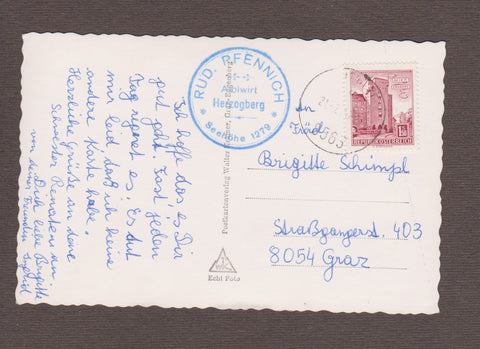 Ich hoffe das es Dir
gut geht. Fast jeden
Tag regnet es. Es tut
mir leid, daß ich keine
andere Karte habe.
Herzliche Grüße an deine
Schwester Renate
Dich liebe Brigitte
von deiner Freundin Ingrid
RUD. PFENNICH
Almwirt
Herzogberg
Seehöhe 1279
Postkartenverlag Walter Kramer, Graz
Echt Foto
8563
REPUBLIK ÖSTERREICH
An
Frau
Brigitte Schimpl
Straßgangerst. 403
8054 Graz